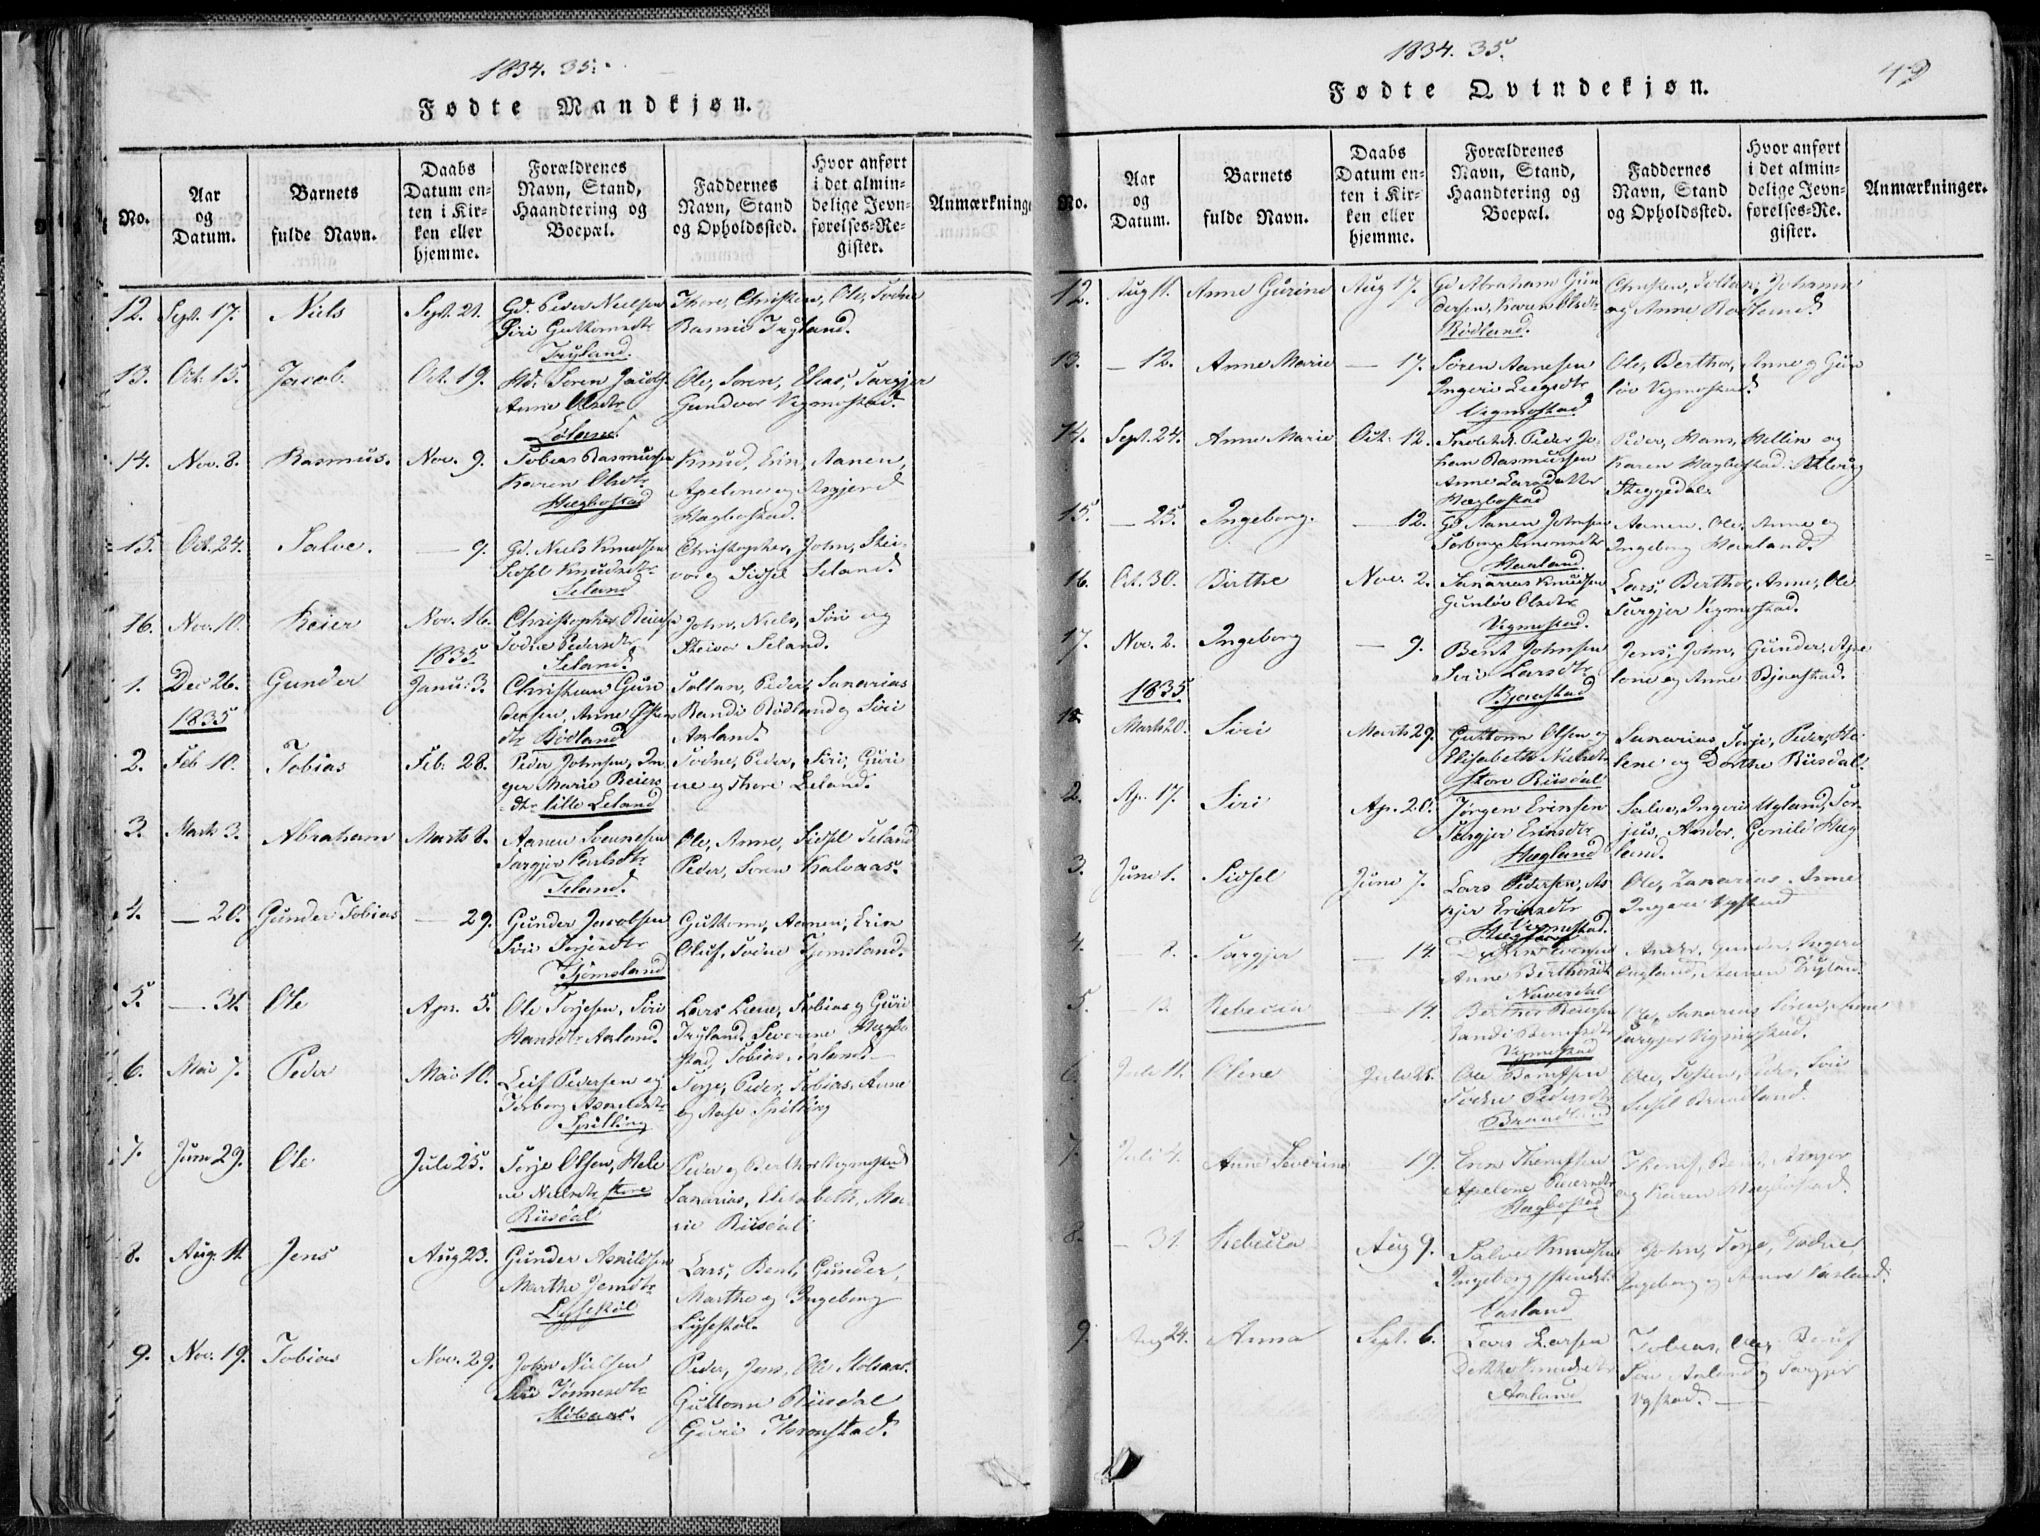 1834. 35.
Fødte Mandkjøn.
No.
Aar
og
Datum.
Barnets
fulde Navn.
Daabs
Datum en-
ten i Kir-
ken eller
hjemme.
Forældrenes
Navn, Stand,
Haandtering og
Boepæl.
Faddernes
Navn, Stand
og Opholdssted.
Hvor anført
i det almin-
delige Jevn-
førelses-Re-
gister.
12. Sept. 17. Niels Sept. 21. Gd. Peder Nielsen
Siri Guttormsdtr
Tryland.
Thore, Christen, Ole, Todne
Rasmus Tryland.
13. Oct. 15. Jacob. Oct. 19. Søren Jacobs.
Anne Olsdtr
Ole, Søren, Elias, Targjer
Gundvor Vigmostad.
14. Nov. 8. Rasmus. Nov. 9. Tobias Rasmussen
Karen Olsdtr
Hægbostad
Knud, Erik, Aanen,
Apelone og Asgjerd
Hægbostad.
15. Oct. 24. Salve. — 9. Gd. Niels Knudsen
Sidsel Knudsdtr
Seland
Christopher, John, Stei-
vor og Sidsel Seland.
16. Nov. 10. Reier Nov. 16. Christopher Reiers
Todne Pedersdtr
Seland.
John, Niels, Siri og
Steivor Seland.
1835
1. Dec 26. Gunder Janu: 3. Christian Gun
dersen, Anne
dtr Rødland
Toltan, Peder, Sanarias
Randi Rødland og Siri
Aarland.
1835
2. Feb 10. Tobias Feb. 28. Peder Johnsen, In
ger Marie Reiers
dtr lille Seland
Todne, Peder, Siri, Guri
ne og Thore Seland.
3. Marts 3. Abraham Marts 8. Aanen Svennesen
Targjer
Seland.
Ole, Anne, Sidsel Seland
Peder, Søren Kalvaas.
4. — 20. Gunder Tobias — 29. Gunder Jacobsen
Siri Terjesdtr
Tjomsland
Guttorm, Aanen, Erik
Oluf, Todne Tjomsland.
5. — 31. Ole Apr. 5. Ole Torjesen, Siri
Hansdtr Aaland.
Lars Liene, Tobias og Guri
Tryland, Severine Hægbo
stad, Tobias Aaland.
6. Mai 7. Peder Mai 10. Leif Pedersen og
Torborg
Spilling
Torje, Peder, Tobias, Anne
og Aase Spilling
7. Juni 29. Ole Juli 25. Torje Olsen, Hele
ne Nielsdtr store
Riisdal
Peder og Berthe Vigmostad
Sanarias, Elisabeth, Ma-
rie Riisdal
8. Aug. 11. Jens Aug 23. Gunder Asnildsen
Marthe Jensdtr
Lyssestøl
Lars, Bent, Gunder,
Marthe og Ingeborg
Lyssestøl.
9. Nov. 19. Tobias Nov. 29. John Nielsen
Siri Tønnesdtr
Peder, Jens, Ole
Guttorm Riisdal
Guri Thronstad.
1834. 35.
Fødte Qvindekjøn.
No.
Aar
og
Datum.
Barnets
fulde Navn.
Daabs
Datum en-
ten i Kir-
ken eller
hjemme.
Forældrenes
Navn, Stand,
Haandtering og
Boepæl.
Faddernes
Navn, Stand
og Opholdssted.
Hvor anført
i det almin-
delige Jevn-
førelses-Re-
gister.
Anmærkninger.
12. Aug 11. Anne Gurine Aug 17. Gd Abraham Gun
dersen, Karen Olsdtr
Rødland.
Christen, Toltan, Johanne
og Anne Rødland.
13. — 12. Anne Marie — 17. Søren Aanesen
Ingeri
Vigmostad
Ole, Berthe, Anne og Gun
løv Vigmostad.
14. Sept. 24. Anne Marie Oct. 12. Peder Jo-
han Rasmussen
Anne Larsdatter
Hægbostad
Peder, Hans, Hellin og
Karen Hægbostad
Steggedal.
15. — 25. Ingeborg. — 12. Gd Aanen Johnsen
Torborg
Haaland.
Aanen, Ole, Anne og
Ingeborg Haaland.
16. Oct. 30. Birthe Nov. 2. Sanarias Knudsen
Gunløv Olsdtr
Vigmostad.
Lars, Berthe, Anne, Ole
Targjer Vigmostad.
17. Nov. 2. Ingeborg — 9. Bent Johnsen
Siri Larsdtr
Bjaastad
Jens, John, Gunder, Ape
lone og Anne Bjaastad.
1835
Marts 20. Siri Marts 29. Guttorm Olsen og
Elisabeth Nielsdtr
store Riisdal
Sanarias, Torje, Peder, He-
lene og Dorthe Riisdal.
2. Ap. 17. Siri Ap. 20. Jørgen Eriksen
Targjer Eriksdtr
Hægland
Salve, Ingeri Ugland, Tor-
jus, Gonild Hæg
land.
3. Juni 1. Sidsel Juni 7. Lars Pedersen, As
gjer Eriksdtr
Vigmostad.
Ole, Zanarias, Anne
Ingeri Vgstad
4. — 8. Targjer — 14.
Anne Berthesdtr
Gunder, Ingeri
Aanen Tryland
5. Rebecca — 14. Berthe Reiersen
Vigmostad
Ole, Sanarias, Søren, Anne
Targjer Vigmostad.
6. Juli 11. Olene Juli 25. Ole Berntsen
Todne Pedersdtr
Brandland
Ole, Peder, Siri
Sidsel Brandland.
7. Juli 4. Anne Severine 19. Erik
Apelone
Hægbostad
Bent, Asgjer
og Karen Hægbostad.
8. — 31. Rebecca Aug 9. Salve Knudsen
Ingeborg
John, Torje, Todne
Ingeborg og Anne
9. Aug 24. Anna Sept. 6. Lars Larsen
Knudsdtr
Aaland
Tobias, Ole,
Siri Aaland og Targjer
Vgstad. —